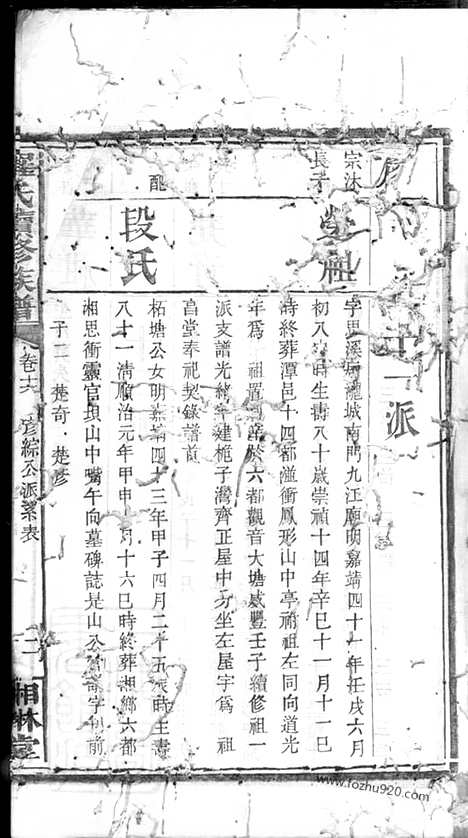 十一派
宗沐
長子
祖
字思溪 龍城南門九江廟明嘉靖四十一年壬戌六月
初八 時生壽八十歲崇禎十四年辛巳十一月十一巳
時終葬潭邑十四都滋衝鳳形山中亭祔祖左同向道光
年爲 祖置 於六都觀音大塘咸豐壬子續修祖一
派支譜光緒 建梔子灣齊正屋中 坐左屋宇爲 祖
昌堂奉祀契錄譜首
配
段氏
柘塘公女明嘉靖四十三年甲子四月二十五 時生壽
八十一清順治元年甲申 月十六巳時終葬湘鄉六都
相思衝靈官垻山中嘴午向墓碑誌是山公 前
子二 楚奇 楚彥
羅氏續修族譜
卷十六 彥綜公派系表
二
湘林堂
www.fozhu920.com